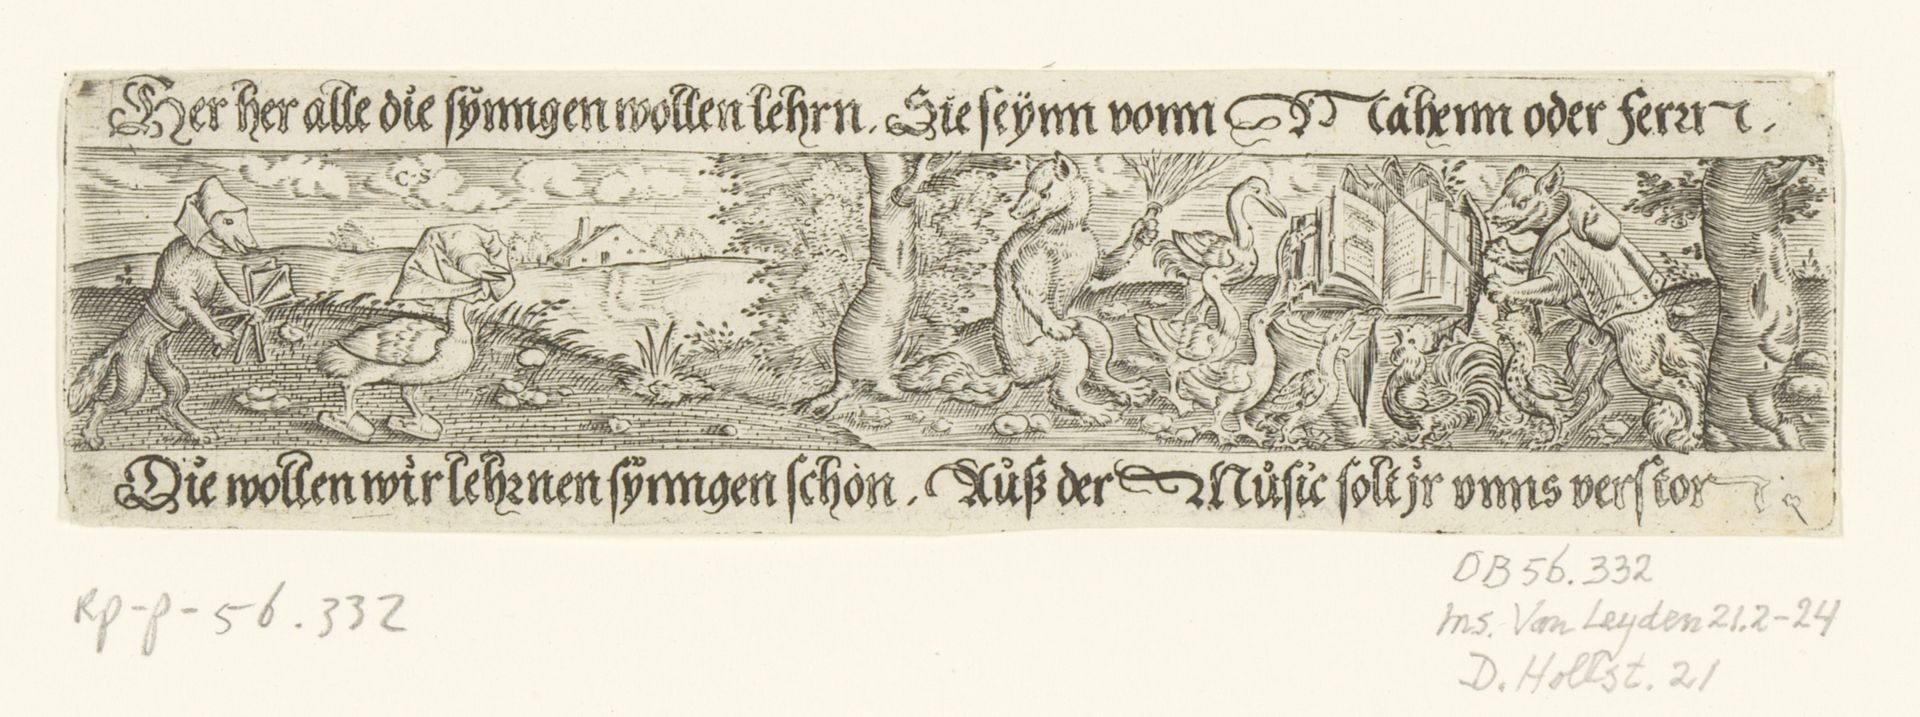 Her her alle die sÿnngen wollen lehrn. Sie seÿnn vonn Nahenn oder ferrn.
C·S
Die wollen wir lehrnen sÿnngen schon. Auß der Music solt jr vnns verston
RP-P-56.332
OB 56.332
Ms. Van Leyden 21.2-24
D. Hollst. 21